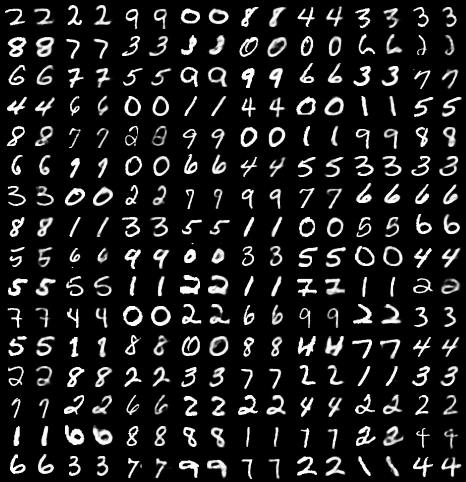 2 2 2 2 9 9 0 0 8 8 4 4 3 3 3 3
8 8 7 7 3 3 3 3 0 0 0 0 6 6 2 2
6 6 7 7 5 5 9 9 9 9 6 6 3 3 7 7
4 4 6 6 0 0 1 1 4 4 0 0 1 1 5 5
8 8 7 7 2 2 9 9 0 0 1 1 9 9 8 8
6 6 9 9 0 0 6 6 4 4 5 5 3 3 3 3
3 3 0 0 2 2 9 9 9 9 7 7 6 6 6 6
8 8 1 1 3 3 5 5 1 1 0 0 5 5 6 6
5 5 6 6 9 9 0 0 3 3 5 5 0 0 4 4
5 5 5 5 1 1 2 2 1 1 7 7 1 1 2 2
7 7 4 4 0 0 2 2 6 6 9 9 2 2 3 3
5 5 1 1 8 8 0 0 8 8 4 4 7 7 4 4
2 2 8 8 2 2 3 3 7 7 2 2 1 1 3 3
7 7 2 2 6 6 2 2 2 2 4 4 2 2 2 2
1 1 6 6 8 8 8 8 1 1 7 7 2 2 4 9
6 6 3 3 7 7 9 9 7 7 2 2 1 1 4 4